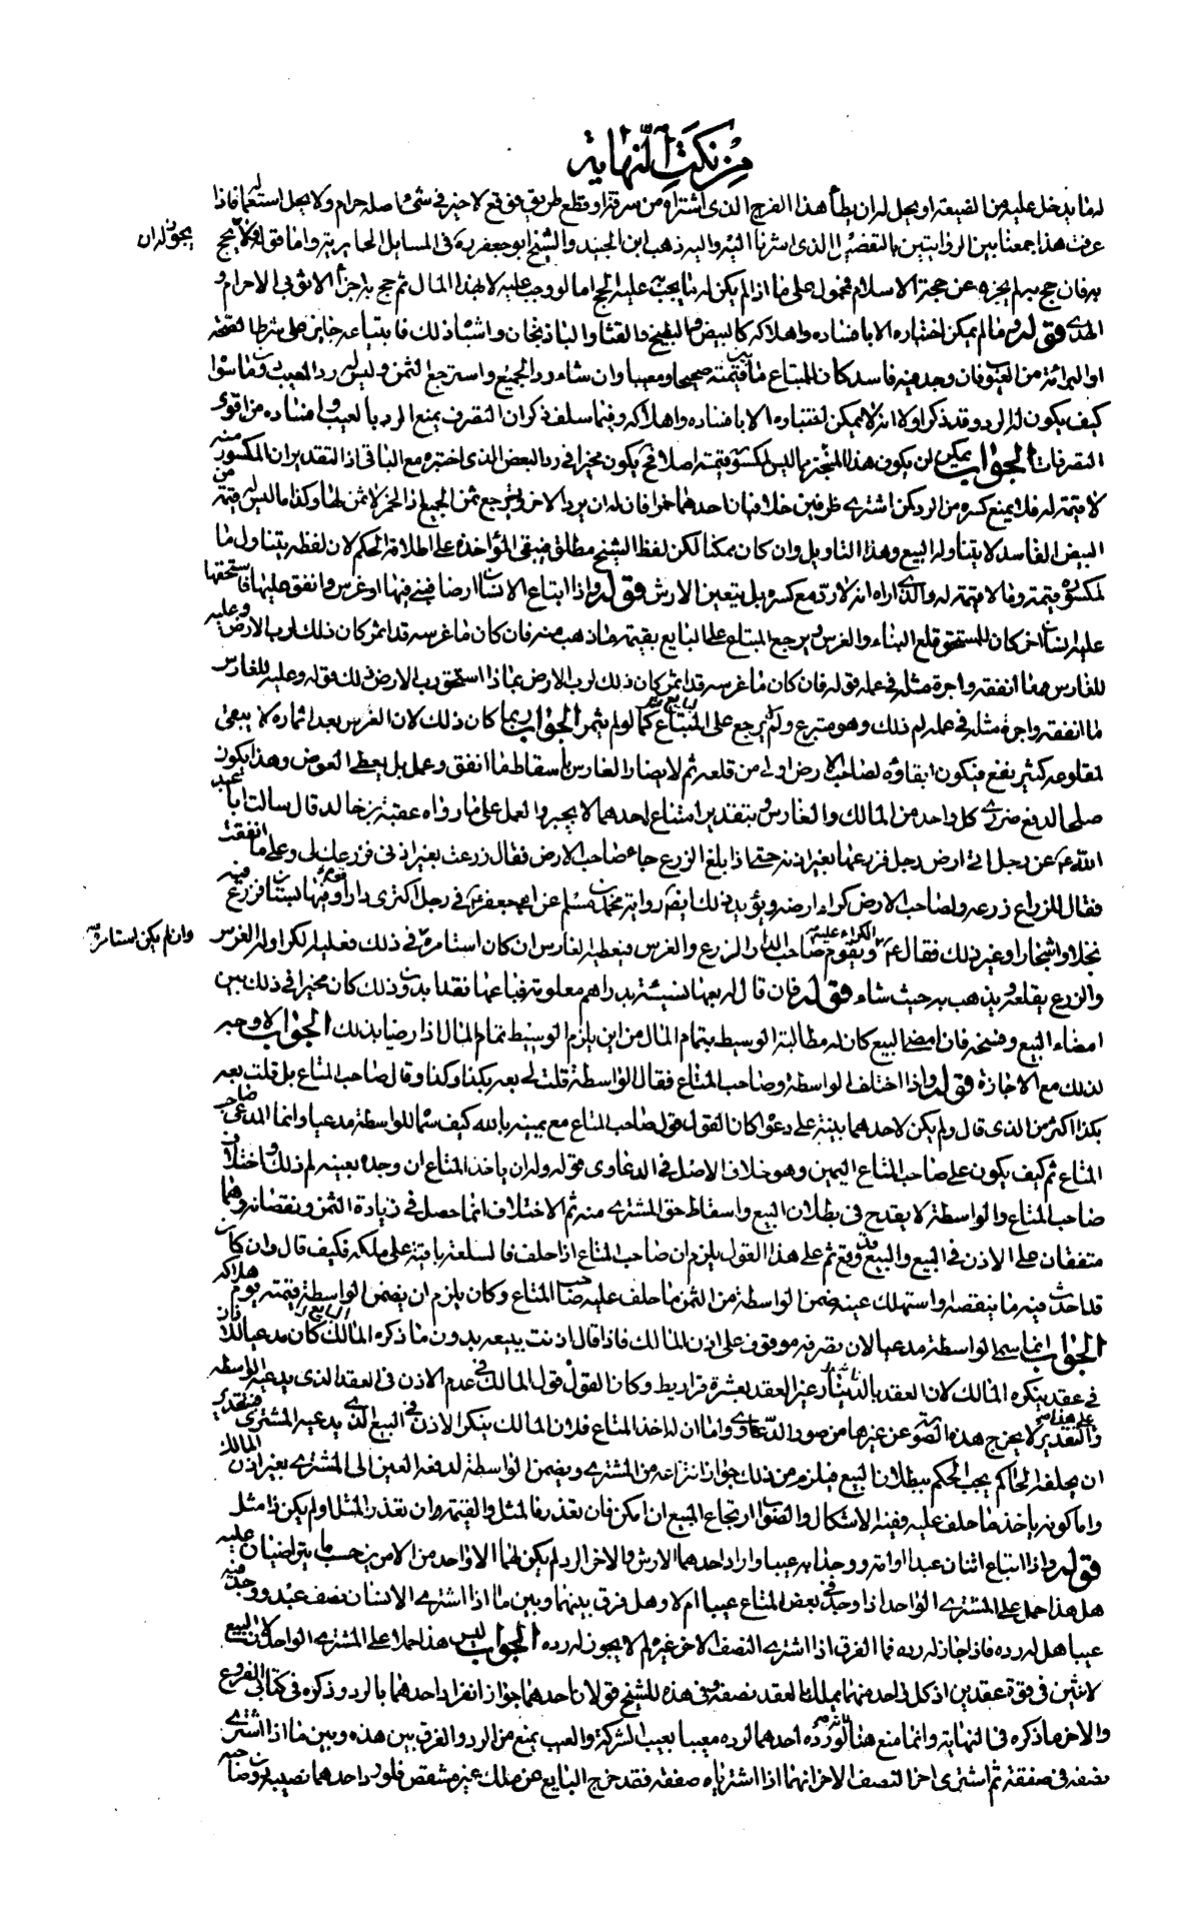 من نكت النهاية
له ما يدخل عليه من الضيعة او يحل له ان يطأ هذا الفرج الذى اشتراه من سرقة او قطع طريق فوقع لا خير فى شئ اصله حرام ولا يحل استعماله فاذا
عرفت هذا جمعنا بين الروايتين بالتفصيل الذى اشرنا اليه واليه ذهب ابن الجنيد والشيخ ابو جعفر ره فى المسايل الحايرية واما قوله ولا يحج
يجوز له ان
به فان حج به لم يجزه عن حجة الاسلام فمحمول على ما اذا لم يكن له ما يجب عليه الحج اما لو وجب عليه لا بهذا المال ثم حج به جزأ الا ثوبى الاحرام و
الهدى قوله وما لم يمكن اختباره الا بافساده واهلاكه كالبيض والبطيخ والقثاء والباذنجان واشباه ذلك فابتياعه جايز على شرط الصحة
او البراءة من العيوب فان وجد فيه فاسد كان للمبتاع ما بين قيمته صحيحا ومعيبا وان شاء رد الجميع واسترجع الثمن وليس له رد المعيب وما سوا
كيف يكون له الرد وقد ذكر اولا انه لا يمكن اختباره الا بافساده واهلاكه وفيما سلف ذكر ان التصرف يمنع الرد بالعيب وافساده من اقوى
التصرفات الجواب يمكن ان يكون هذا المتجه بما ليس لمكسوره قيمة اصلا فح يكون مخيرا فى رد البعض الذى اختبره مع الباقى اذ التقدير ان المكسور منه
لا قيمة له فلا يمنع كسره من الرد كمن اشترى ظرفين خلا فبان احدهما خمرا فان له ان يرد الاخر ويرجع ثمن الجميع اذ الخمر لا ثمن لها وكذا ما ليس له قيمة من
البيض الفاسد لا يتناوله البيع وهذا التاويل وان كان ممكنا لكن لفظ الشيخ مطلق فيبقى المؤاخذة على اطلاقه الحكم لان لفظه يتناول ما
لمكسوره قيمة وما لا قيمة له والذى اراه انه لا رد مع كسره بل يتعين الارش قوله واذا ابتاع الانسان ارضا فبنى فيها او غرس وانفق عليها فاستحقها
عليه انسان اخر كان للمستحق قلع البناء والغرس ويرجع المبتاع على البايع بقيمة ما ذهب منه فان كان ما غرسه قد اثمر كان ذلك لرب الارض وعليه
للغارس ما انفقه واجرة مثله فى عمله قوله فان كان ما غرسه قد اثمر كان ذلك لرب الارض بماذا استحق رب الارض ذلك قوله وعليه للغارس
ما انفقه واجرة مثله فى عمله لم ذلك وهو متبرع ولم لا يرجع على البايع كما لو لم يثمر الجواب ربما كان ذلك لان الغرس بعد اثماره لا يبقى
لمقلوعه كثير نفع فيكون ابقاؤه لصاحب الارض اولى من قلعه ثم لا يضار الغارس باسقاط ما انفق وعمل بل يعطى العوض وهذا يكون
صلحا لدفع ضرر كل واحد من المالك والغارس وبتقدير امتناع احدهما لا يجبر والعمل على ما رواه عقبة بن خالد قال سالت ابا عبد
الله ع عن رجل اتى ارض رجل فزرعها بغير اذنه حتى اذا بلغ الزرع جاء صاحب الارض فقال زرعت بغير اذنى فزرعك لى وعلى ما انفقت
فقال للزراع زرعه ولصاحب الارض كراء ارضه ويؤيد ذلك ايضا رواية محمد بن مسلم عن ابى جعفر ع فى رجل اكترى دارا وفيها بستان فزرع فيه
نخلا واشجارا وغير ذلك فقال ع عليه الكراء ويقوم صاحب الدار الزرع والغرس فيعطيه الغارس ان كان استامره فى ذلك فعليه الكراء وله الغرس
وان لم يكن استامره
والزرع يقلعه ويذهب به حيث شاء قوله فان قال له بعها نسيئة بدراهم معلومة فباعها نقدا بدون ذلك كان مخيرا فى ذلك بين
امضاء البيع وفسخه فان امضى البيع كان له مطالبة الوسيط بتمام المال من اين يلزم الوسيط تمام المال اذا رضيا بذلك الجواب لا وجه
لذلك مع الاجازة قوله واذا اختلف الواسطة وصاحب المتاع فقال الواسطة قلت لى بعه بكذا وكذا وقال صاحب المتاع بل قلت بعه
بكذا اكثر من الذى قال ولم يكن لاحدهما بينة على دعواه كان القول قول صاحب المتاع مع يمينه بالله كيف سما الواسطة مدعيا وانما المدعى صاحب
المتاع ثم كيف يكون على صاحب المتاع اليمين وهو خلاف الاصل فى الدعاوى قوله وله ان ياخذ المتاع ان وجده بعينه لم ذلك واختلاف
صاحب المتاع والواسطة لا يقدح فى بطلان البيع واسقاط حق المشترى منه ثم الاختلاف انما حصل فى زيادة الثمن ونقصانه وهما
متفقان على الاذن فى البيع والبيع قد وقع ثم على هذا القول يلزم ان صاحب المتاع اذا حلف فالسلعة باقية على ملكه فكيف قال وان كان
قد احدث فيه ما ينقصه او استهلك عينه ضمن الواسطة من الثمن ما حلف عليه صاحب المتاع وكان يلزم ان يضمن الواسطة قيمته يوم هلاكه
الجواب انما سمى الواسطة مدعيا لان تصرفه موقوف على اذن المالك فاذا قال اذنت ببيعه بدون ما ذكره المالك كان مدعيا للاذن
فى عقد ينكره المالك لان العقد بالدينار غير العقد بعشرة قراريط وكان القول قول المالك فى عدم الاذن فى العقد الذى يدعيه الواسطه
على هذا التقدير لا يخرج هذه الصورة عن غيرها من صور الدعاوى واما ان له اخذ المتاع فلان المالك ينكر الاذن فى البيع الذى يدعيه المشترى فبتقدير
ان يحلفه الحاكم يجب الحكم ببطلان البيع فيلزم من ذلك جواز انتزاعه من المشترى ويضمن الواسطة لدفعه العين الى المشترى بغير اذن المالك
واما كونه ياخذ ما حلف عليه ففيه الاشكال والصواب ارتجاع المبيع ان امكن فان تعذر فالمثل والقيمة وان تعذر المثل او لم يكن ذا مثل
قوله واذا ابتاع اثنان عبدا او امة ووجدا به عيبا واراد احدهما الارش والاخر الرد لم يكن لهما الا واحد من الامرين حسب ما يتراضيان عليه
هل هذا حمل على المشترى الواحد اذا وجد فى بعض المتاع عيبا ام لا وهل فرق بينهما وبين ما اذا اشترى الانسان نصف عبد ووجد فيه
عيبا هل له رده فاذا جاز له رده فما الفرق اذا اشترى النصف الاخر غيره لم لا يجوز له رده الجواب ليس هذا حملا على المشترى الواحد لان البيع
لاثنين فى قوة عقدين اذ كل واحد منهما يملك بالعقد نصفه وفى هذه للشيخ قولان احدهما جواز انفراد احدهما بالرد وذكره فى كتابى الفروع
والاخر ما ذكره فى النهاية وانما منع هنا لانه لو رده احدهما لرده معيبا بعيب الشركة والعيب يمنع من الرد والفرق بين هذه وبين ما اذا اشترى
نصفه فى صفقة ثم اشترى اخر النصف الاخر انهما اذا اشترياه صفقة فقد خرج البايع عن ملك غير مشقص فلو رد احدهما نصيبه دون صاحبه